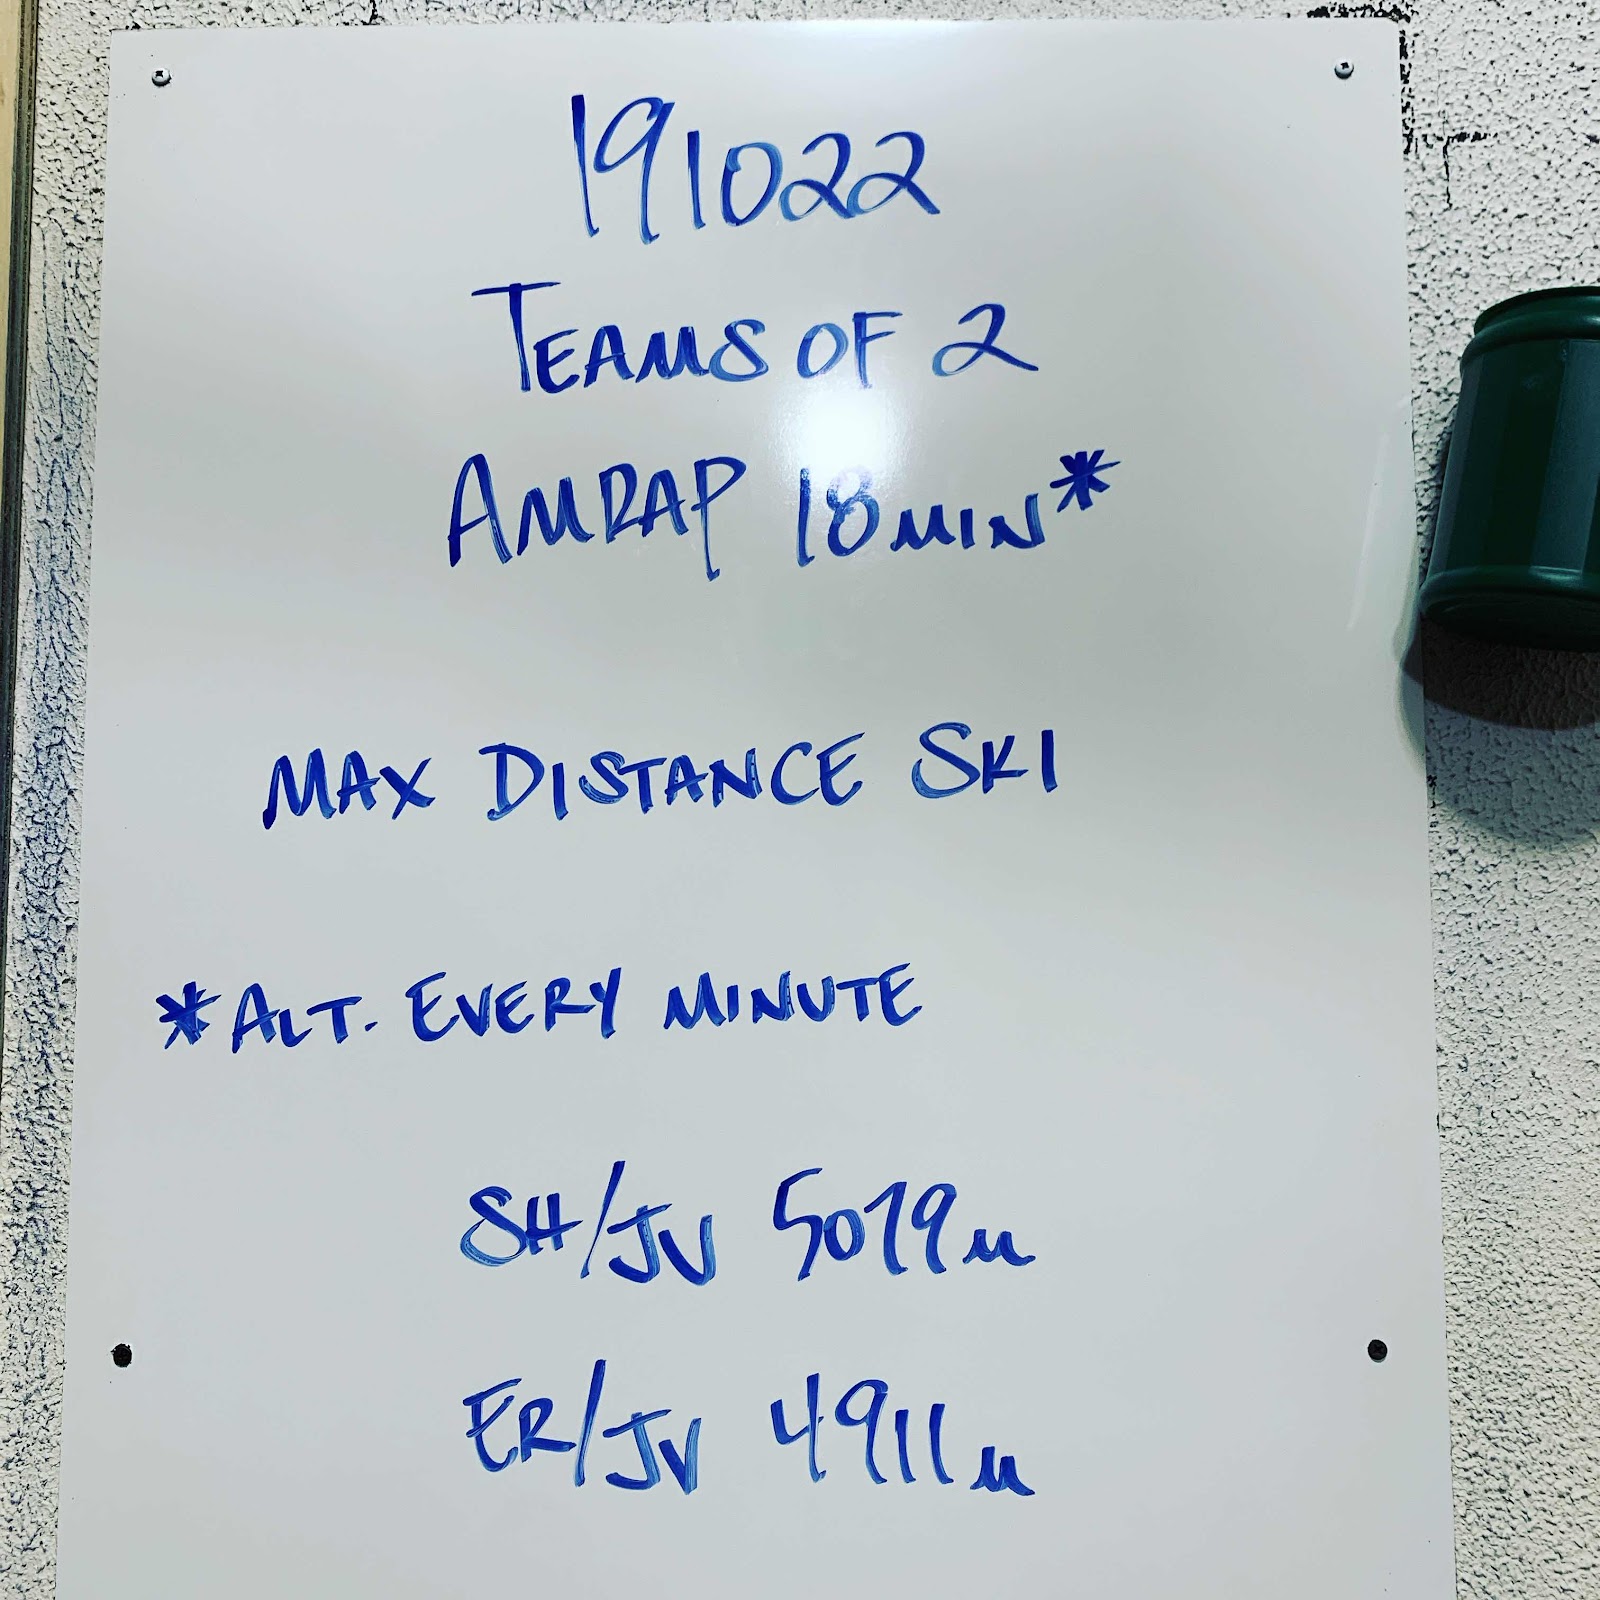 191022
TEAMS OF 2
AMRAP 18 MIN*
MAX DISTANCE SKI
*ALT. EVERY MINUTE
SH/JV 5079m
ER/JV 4911m